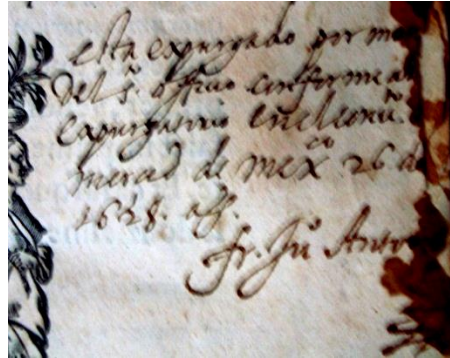 esta expurgado por m
del s.º offiçio conforme al
expurgatorio en el conu.to
merced de mex.co 26 de
1628. aº.
fr. Juº Anto